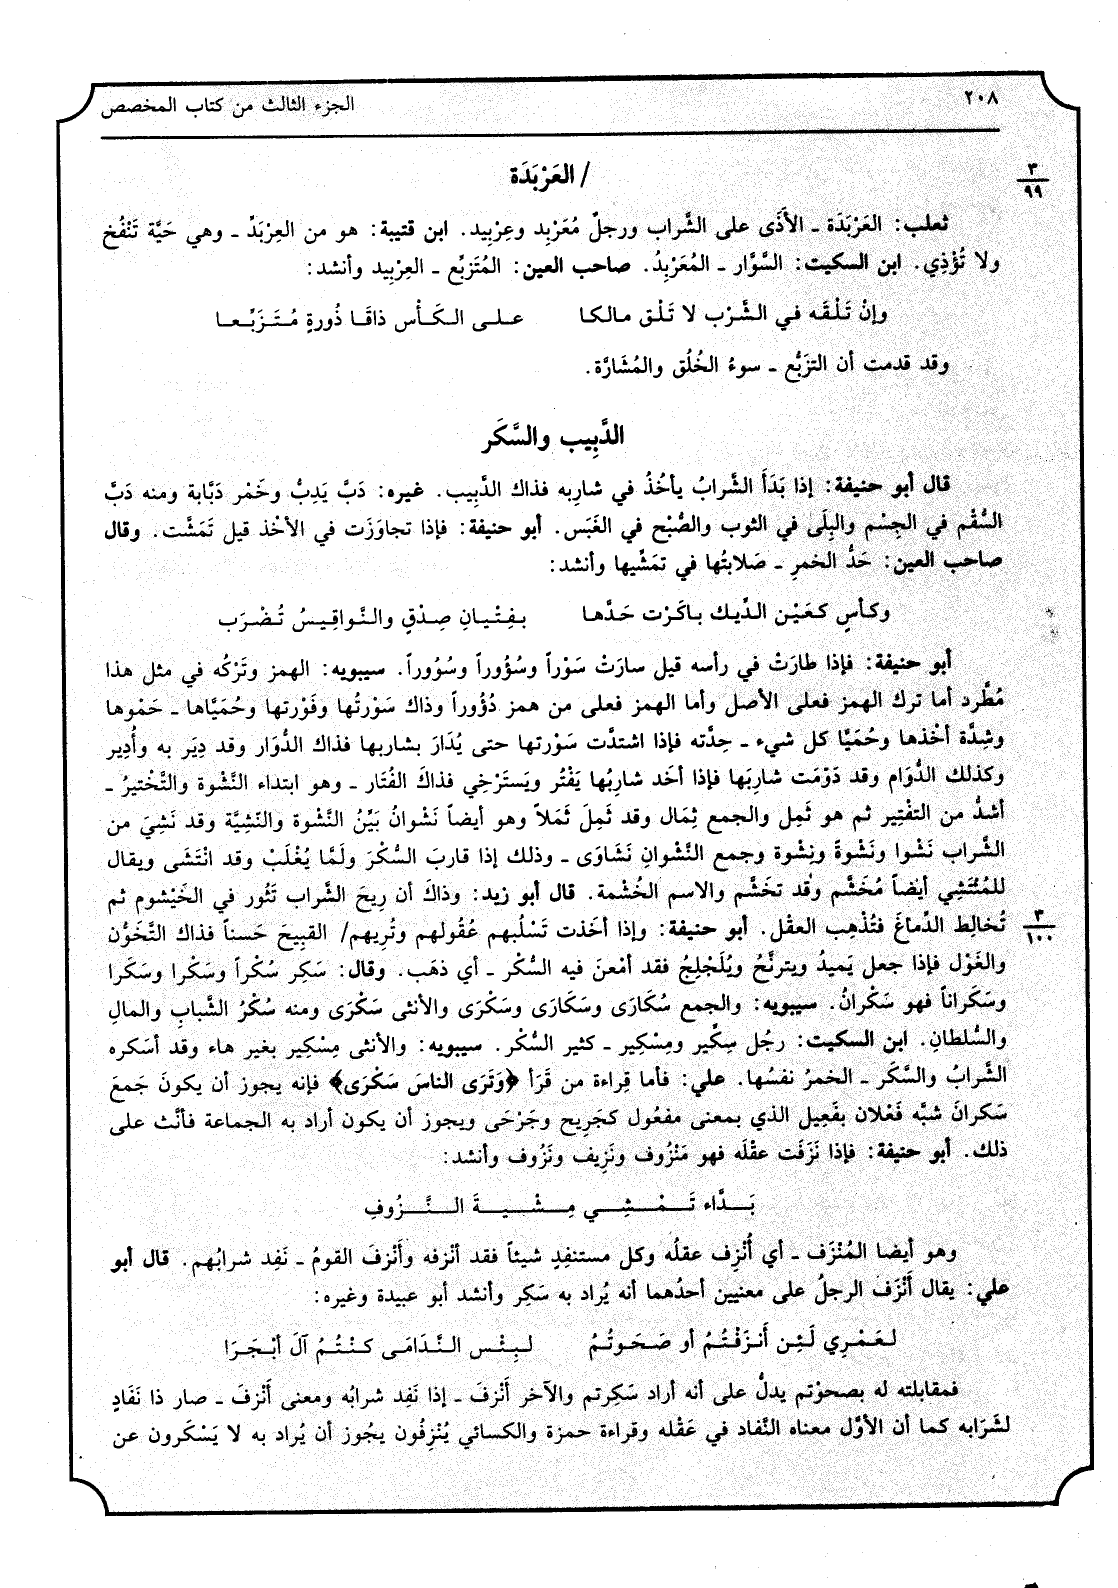 ٢٠٨ الجزء الثالث من كتاب المخصص
/ العَرْبَدَة
٣
٩٩
ثعلب: العَرْبَدَة ـ الأَذَى على الشَّراب ورجلٌ مُعَرْبِد وعِرْبِيد. ابن قتيبة: هو من العِرْبَدِّ ـ وهي حَيَّة تَنْفُخ
ولا تُؤْذِي. ابن السكيت: السَّوَّار ـ المُعَرْبِدُ. صاحب العين: المُتَزبِّع ـ العِرْبِيد وأنشد:
وإنْ تَلْقَه في الشَّرْب لا تَلْق مالكا على الكَأْس ذاقَا ذُورةٍ مُتَزَبِّعا
وقد قدمت أن التزَبُّع ـ سوءُ الخُلُق والمُشَارَّة.
الدَّبِيب والسَّكَر
قال أبو حنيفة: إذا بَدَأَ الشَّرابُ يأخُذُ في شارِبه فذاك الدَّبِيب. غيره: دَبَّ يَدِبُّ وخَمْر دَبَّابة ومنه دَبَّ
السُّقْم في الجِسْم والبِلَى في الثوب والصُّبْح في الغَبَس. أبو حنيفة: فإذا تجاوَزَت في الأخْذ قيل تَمَشَّت. وقال
صاحب العين: حَدُّ الخمرِ ـ صَلابتُها في تمَشِّيها وأنشد:
وكأسٍ كعَيْن الدِّيك باكَرْت حَدَّها بفِتْيانِ صِدْقٍ والنَّواقِيسُ تُضْرَب
أبو حنيفة: فإذا طارَتْ في رأسه قيل سارَتْ سَوْراً وسُؤُوراً وسُوُوراً. سيبويه: الهمز وتَرْكُه في مثل هذا
مُطَّرِد أما ترك الهمز فعلى الأصل وأما الهمز فعلى من همز دُؤُوراً وذاك سَوْرتُها وفَوْرتها وحُمَيَّاها ـ حَمْوها
وشِدَّة أخْذها وحُمَيَّا كل شيء ـ حِدَّته فإذا اشتدَّت سَوْرتها حتى يُدَارَ بشاربها فذاك الدُّوَار وقد دِيَر به وأُدِير
وكذلك الدُّوَام وقد دَوَّمَت شاربَها فإذا أخَد شاربُها يَفْتُر ويَستَرْخِي فذاكَ الفُتَار ـ وهو ابتداء النَّشْوة والتَّخْتيرُ ـ
أشدُّ من التفْتِير ثم هو ثَمِل والجمع ثِمَال وقد ثَمِلَ ثَمَلاً وهو أيضاً نَشْوانُ بَيِّنُ النَّشْوة والنَشِيَّة وقد نَشِيَ من
الشَّراب نَشْوا ونَشْوةً ونِشْوة وجمع النَّشْوانِ نَشَاوَى ـ وذلك إذا قاربَ السُّكْرَ ولَمَّا يُغْلَبْ وقد انْتَشَى ويقال
للمُنْتَشِي أيضاً مُخَشَّم وقد تخَشَّم والاسم الخُشْمة. قال أبو زيد: وذاكَ أن رِيحَ الشَّراب تَثُور في الخَيْشوم ثم
٣
١٠٠
تُخالِط الدِّماغَ فتُذْهِب العقْل. أبو حنيفة: وإذا أخَذت تَسْلُبهم عُقُولهم وتُرِيهم/ القبِيحَ حَسناً فذاك التَّخَوُّن
والغَوْل فإذا جعل يَميدُ ويترنَّحُ ويُلَجْلِجُ فقد أمْعنَ فيه السُّكْر ـ أي ذهَب. وقال: سَكِر سُكْراً وسَكْرا وسَكَرا
وسَكَراناً فهو سَكْرانُ. سيبويه: والجمع سُكَارَى وسَكَارَى وسَكْرَى والأنثى سَكْرَى ومنه سُكْرُ الشَّبابِ والمالِ
والسُّلطانِ. ابن السكيت: رجُل سِكِّير ومِسْكِير ـ كثير السُّكْر. سيبويه: والأنثى مِسْكِير بغير هاء وقد أسَكره
الشَّرابُ والسَّكَر ـ الخمرُ نفسُها. علي: فأما قِراءة من قَرَأ ﴿وَتَرَى الناسَ سَكْرَى﴾ فإنه يجوز أن يكونَ جَمعَ
سَكرانَ شبَّه فَعْلان بفَعِيل الذي بمعنى مفعُول كجَرِيح وجَرْحَى ويجوز أن يكون أراد به الجماعة فأنَّث على
ذلك. أبو حنيفة: فإذا نَزَفَت عقْلَه فهو مَنْزُوف ونَزِيف ونَزُوف وأنشد:
بَدَّاء تَمْشِي مِشْيةَ النَّزُوفِ
وهو أيضا المُنْزَف ـ أي أُنْزِف عقلُه وكل مستنفِدٍ شيئاً فقد أنْزفه وأَنْزفَ القومُ ـ نَفِد شرابُهم. قال أبو
علي: يقال أَنْزَفَ الرجلُ على معنيين أحدُهما أنه يُراد به سَكِر وأنشد أبو عبيدة وغيره:
لعَمْرِي لَئِن أَنزَفْتُمُ أو صَحَوتُمُ لبِئْس النَّدَامَى كنْتُمُ آلَ أبْجَرَا
فمقابلته له بصحوْتم يدلُّ على أنه أراد سَكِرتم والآخر أَنْزفَ ـ إذا نَفِد شرابُه ومعنى أَنْزفَ ـ صار ذا نَفَادٍ
لشَرَابه كما أن الأوَّل معناه النَّفاد في عَقْله وقراءة حمزة والكسائي يُنْزِفُون يجُوز أن يُراد به لا يَسْكَرون عن